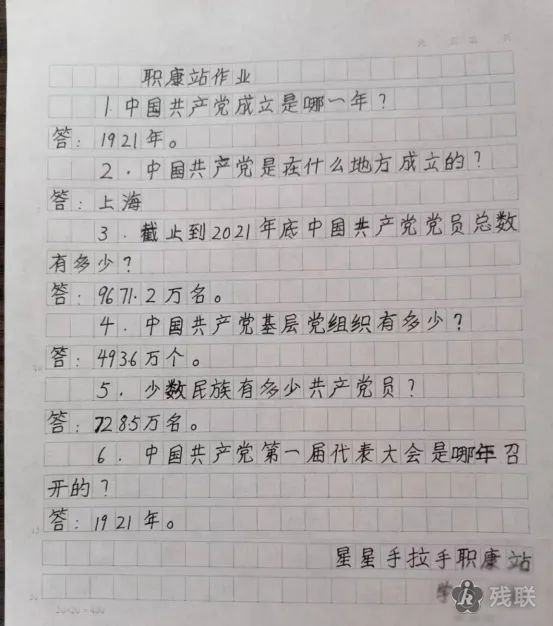 职康站作业
1.中国共产党成立是哪一年？
答：1921年。
2.中国共产党是在什么地方成立的？
答：上海
3.截止到2021年底中国共产党党员总数
有多少？
答：9671.2万名。
4.中国共产党基层党组织有多少？
答：4936万个。
5.少数民族有多少共产党员？
答：7285万名。
6.中国共产党第一届代表大会是哪年召
开的？
答：1921年。
星星手拉手职康站
学
残联
20×20=400